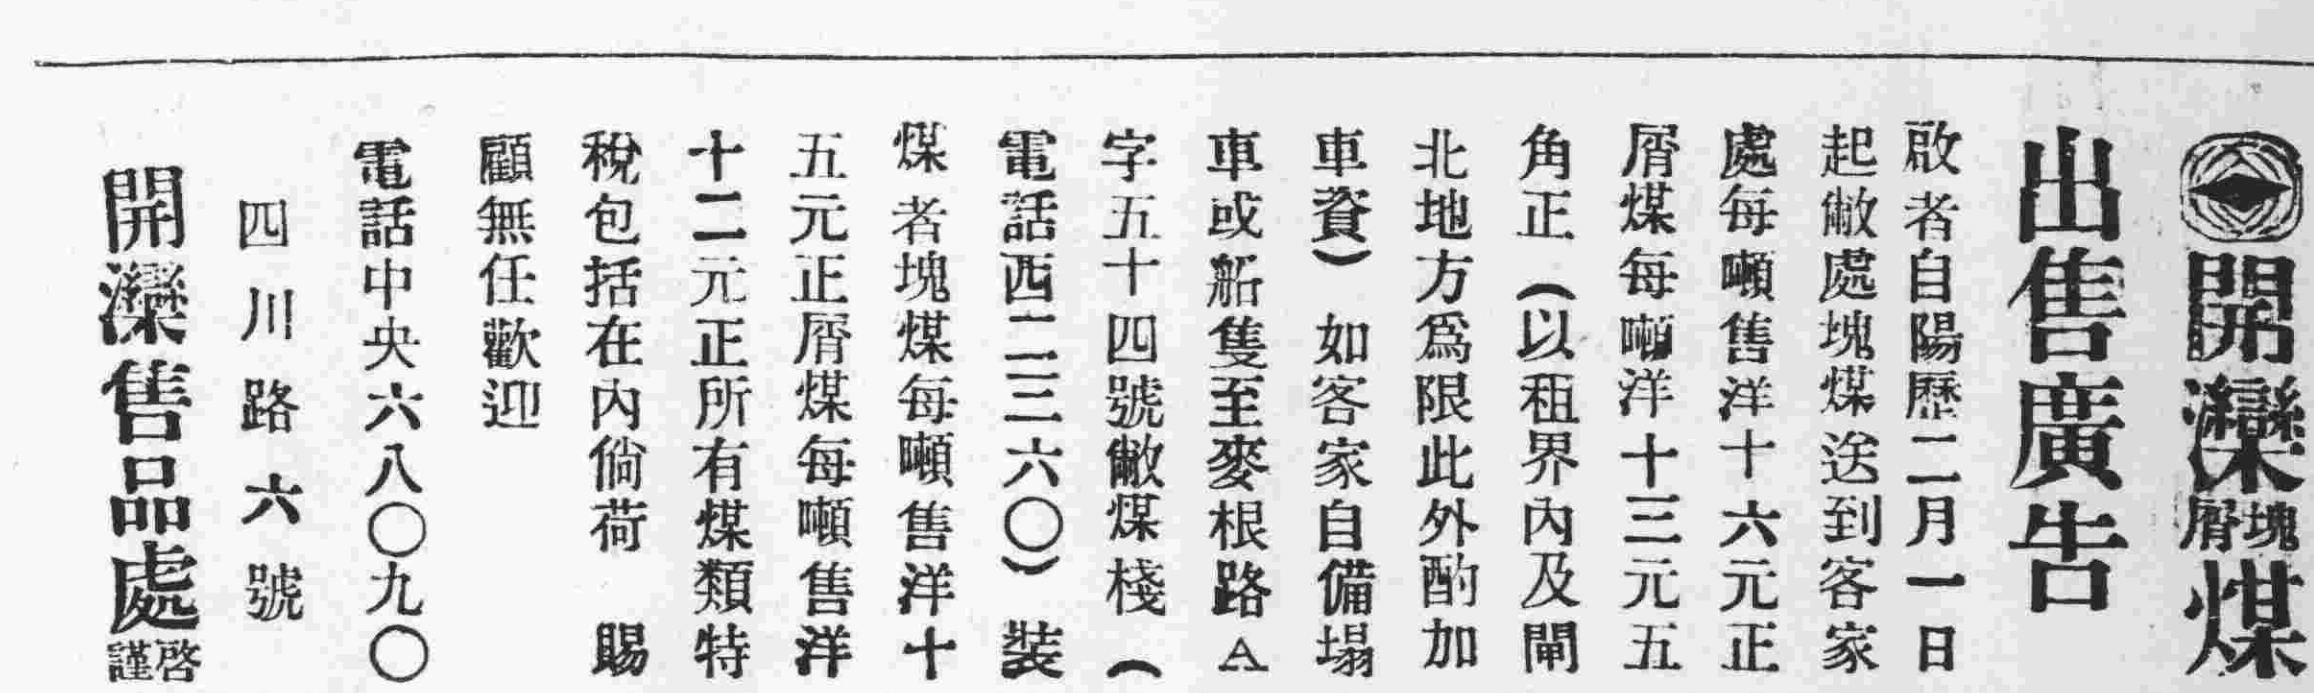 開灤塊屑煤
出售廣告
啟者自陽歷二月一日
起敝處塊煤送到客家
處每噸售洋十六元正
屑煤每噸洋十三元五
角正（以租界內及閘
北地方為限此外酌加
車資）如客家自備塌
車或船隻至麥根路A
字五十四號敝煤棧（
電話西二三六〇）裝
煤者塊煤每噸售洋十
五元正屑煤每噸售洋
十二元正所有煤類特
稅包括在內倘荷　賜
顧無任歡迎
電話中央六八〇九〇
四川路六號
開灤售品處謹啓